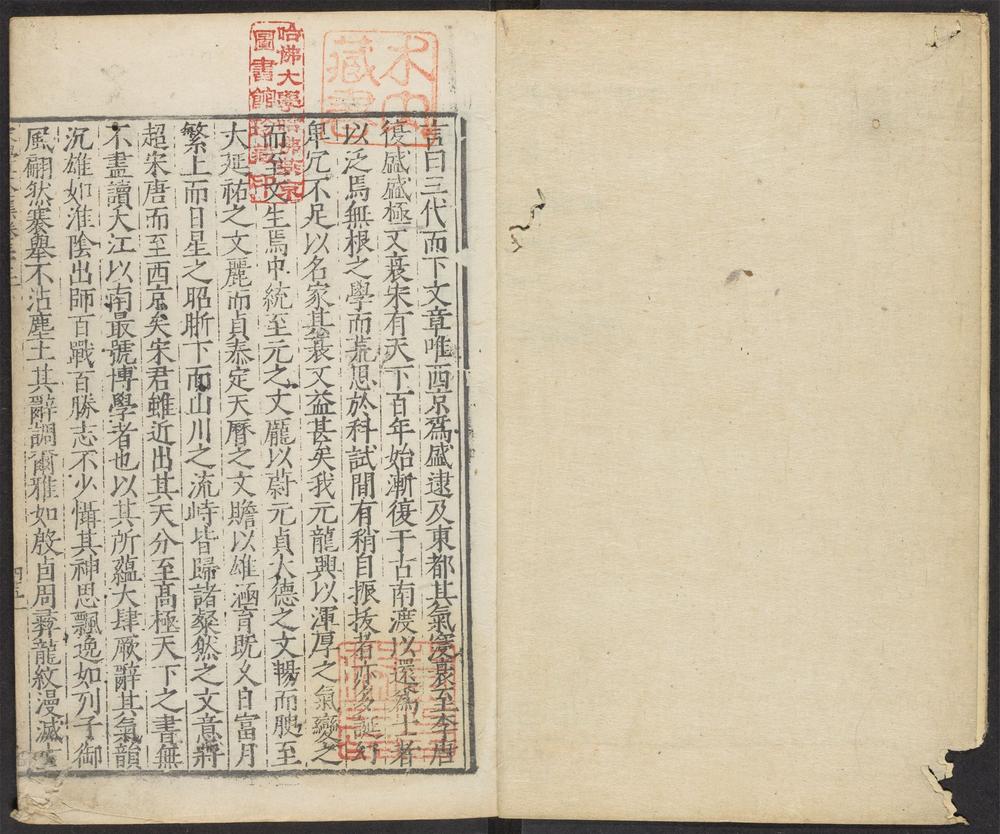 言曰三代而下文章唯西京爲盛逮及東都其氣寖衰至李唐
復盛盛極又衰宋有天下百年始漸復于古南渡以還爲士者
以泛焉無根之學而荒思於科試間有稍自振拔者亦多誕幻
卑冗不足以名家其衰又益甚矣我元龍興以渾厚之氣變之
而至文生焉中統至元之文龐以蔚元貞大德之文暢而腴至
大延祐之文麗而貞泰定天曆之文贍以雄涵育既乆日富月
繁上而日星之昭晣下而山川之流峙皆歸諸粲然之文意將
超宋唐而至西京矣宋君雖近出其天分至高極天下之書無
不盡讀大江以南最號博學者也以其所蘊大肆厥辭其氣韻
沉雄如淮陰出師百戰百勝志不少懾其神思飄逸如列子御
風翩然褰舉不沾塵土其辭調爾雅如殷卣周彞龍紋漫滅
哈佛大學
圖書館珍藏印
藏書